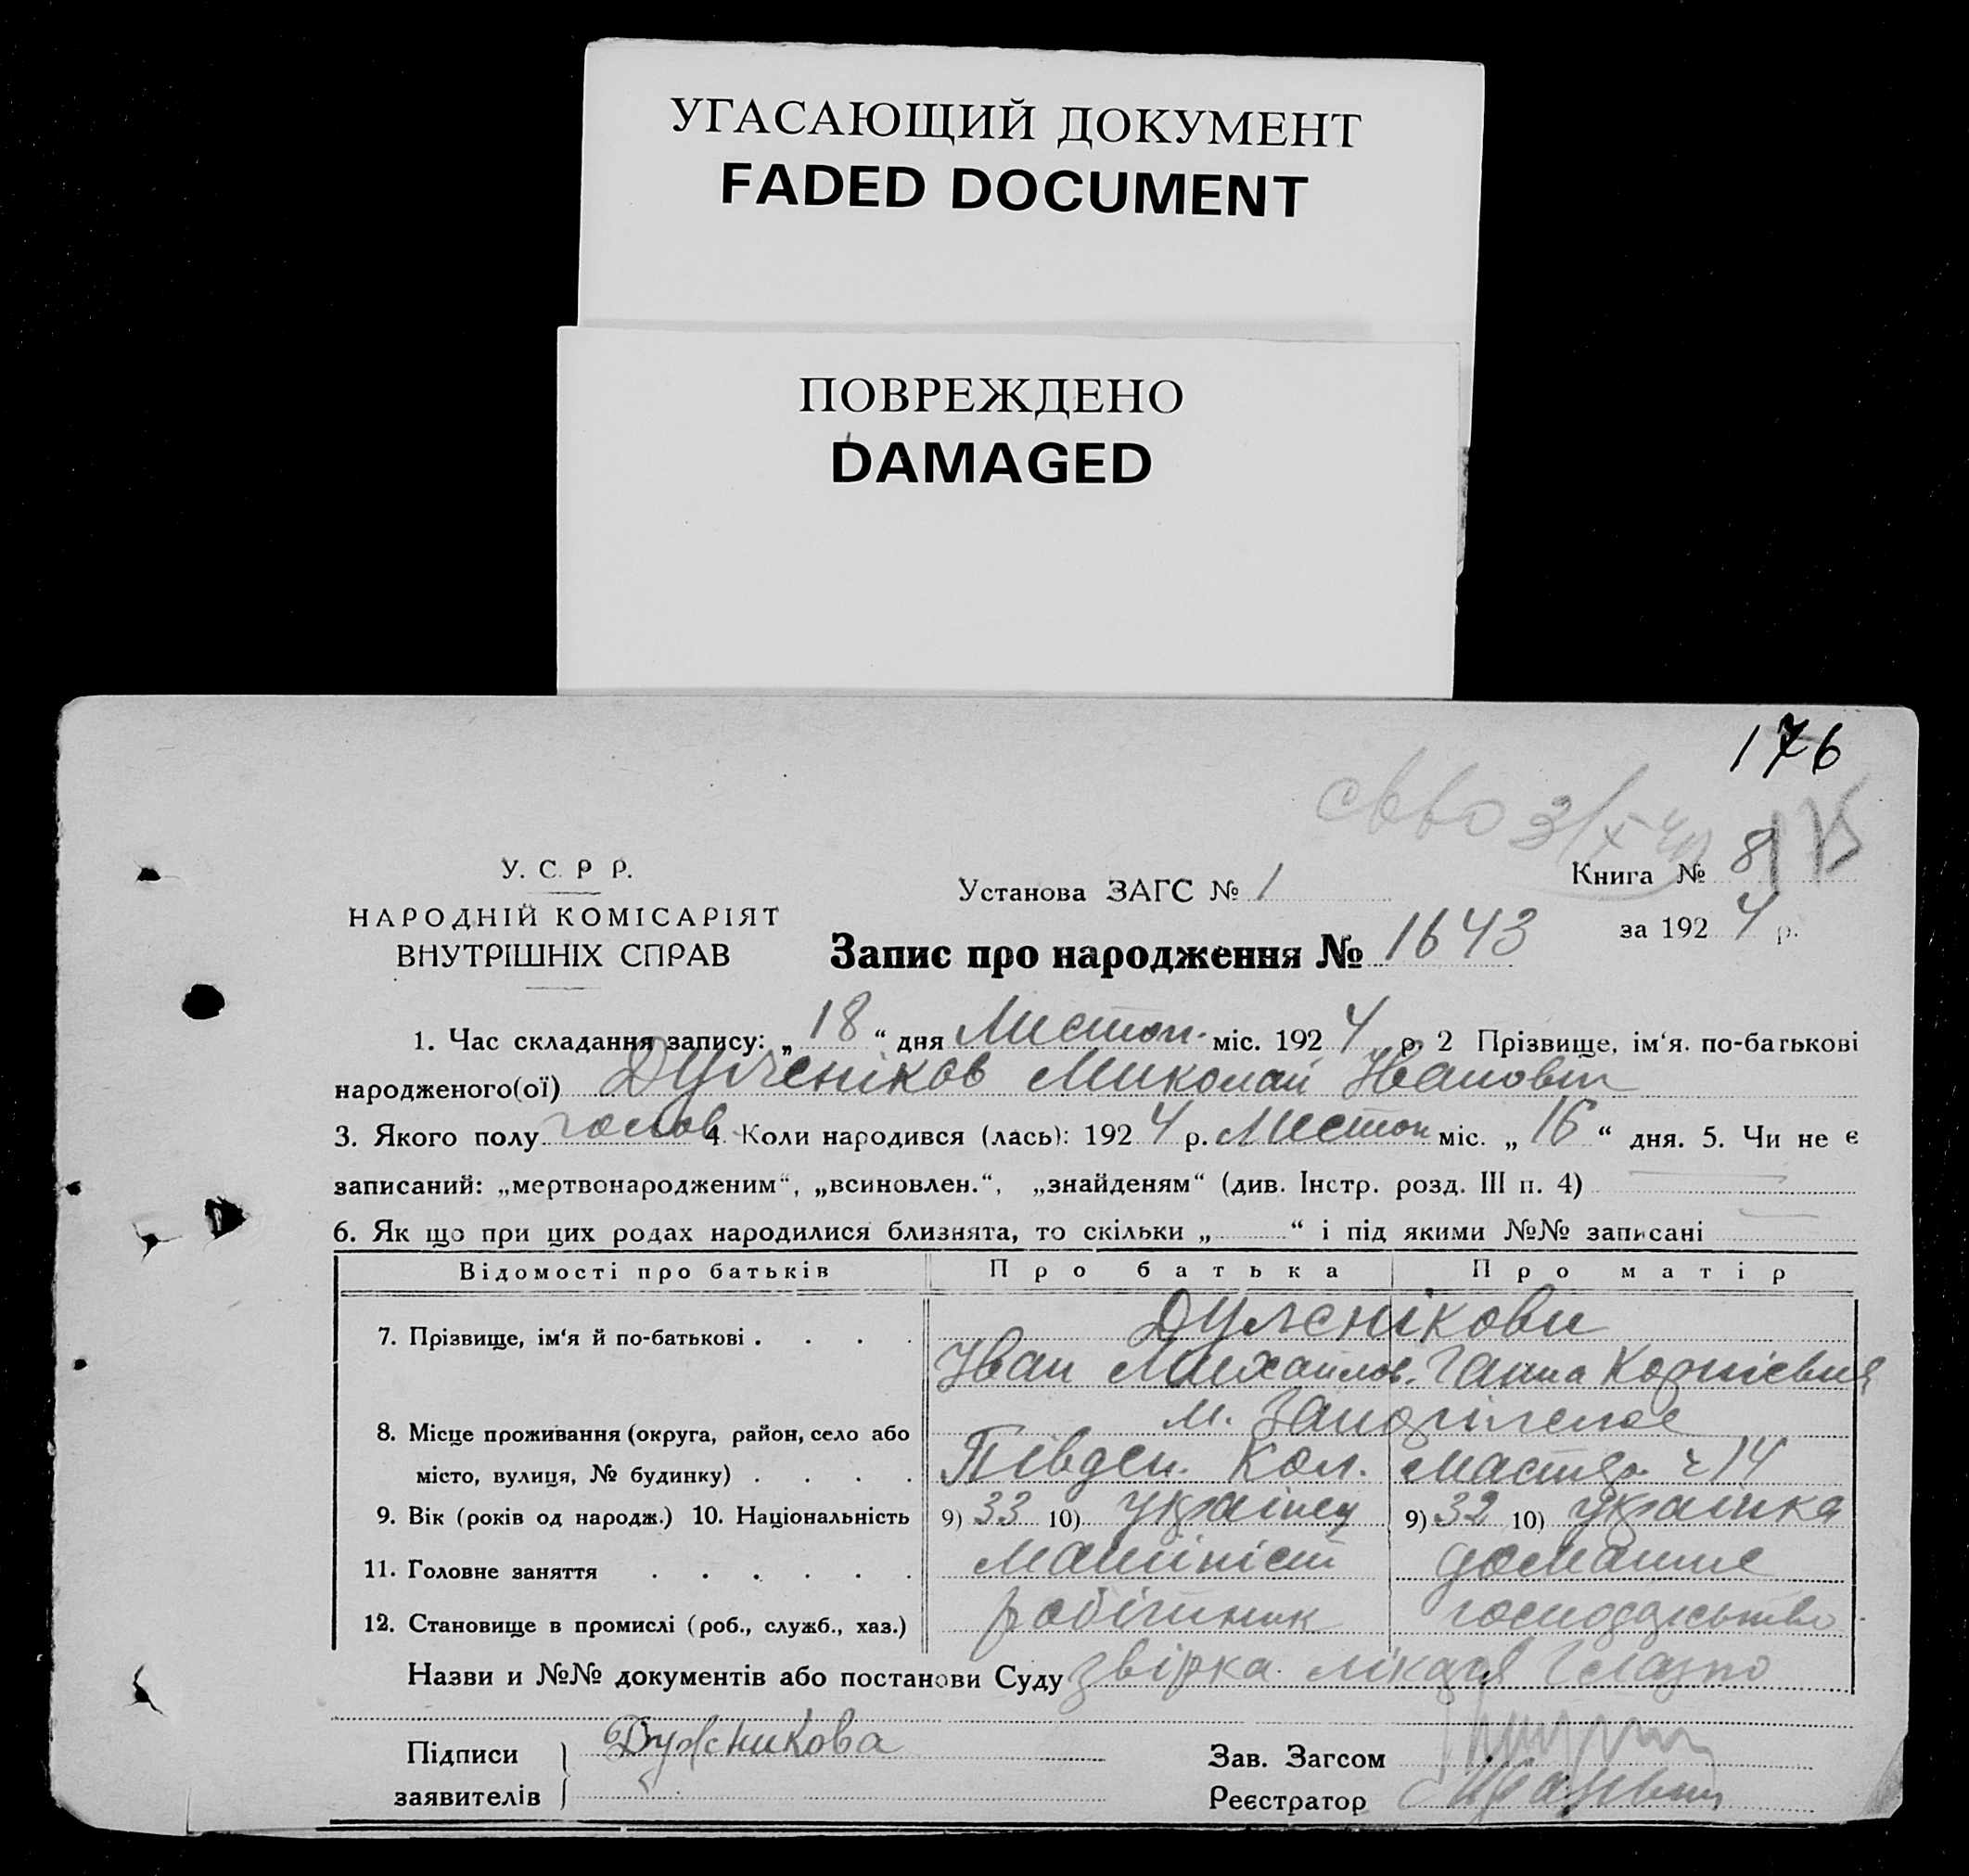 УГАСАЮЩИЙ ДОКУМЕНТ
FADED DOCUMENT
ПОВРЕЖДЕНО
DAMAGED
176
У. С. Р Р.
НАРОДНІЙ КОМІСАРІЯТ
ВНУТРІШНІХ СПРАВ
Установа ЗАГС № 1
Книга № 8
за 1924 р.
Запис про народження № 1643
1. Час складання запису: „18“ дня Листоп. міс. 1924 р. 2 Прізвище, ім‘я. по-батькові
народженого(ої) Миколай Іванович
3. Якого полу 4. Коли народився (лась): 1924 р. Листоп міс. „16“ дня. 5. Чи не є
записаний: „мертвонародженим“, „всиновлен.“, „знайденям“ (див. Інстр. розд. III п. 4)
6. Як що при цих родах народилися близнята, то скільки „ “ і під якими №№ записані
Відомості про батьків Про батька Про матір
7. Прізвище, ім‘я й по-батькові . . . .
Іван Михайлов. Ганна Корніевна
8. Місце проживання (округа, район, село або м.
місто, вулиця, № будинку) . . . . Півден. Кол. 14
9. Вік (років од народж.) 10. Національність 9) 33 10) Українец 9) 32 10) Українка
11. Головне заняття . . . . . . Машініст домашне
12. Становище в промислі (роб., служб., хаз.) робітник господарьство
Назви и №№ документів або постанови Суду звірка лікаря
Підписи
заявителів
Зав. Загсом
Реєстратор